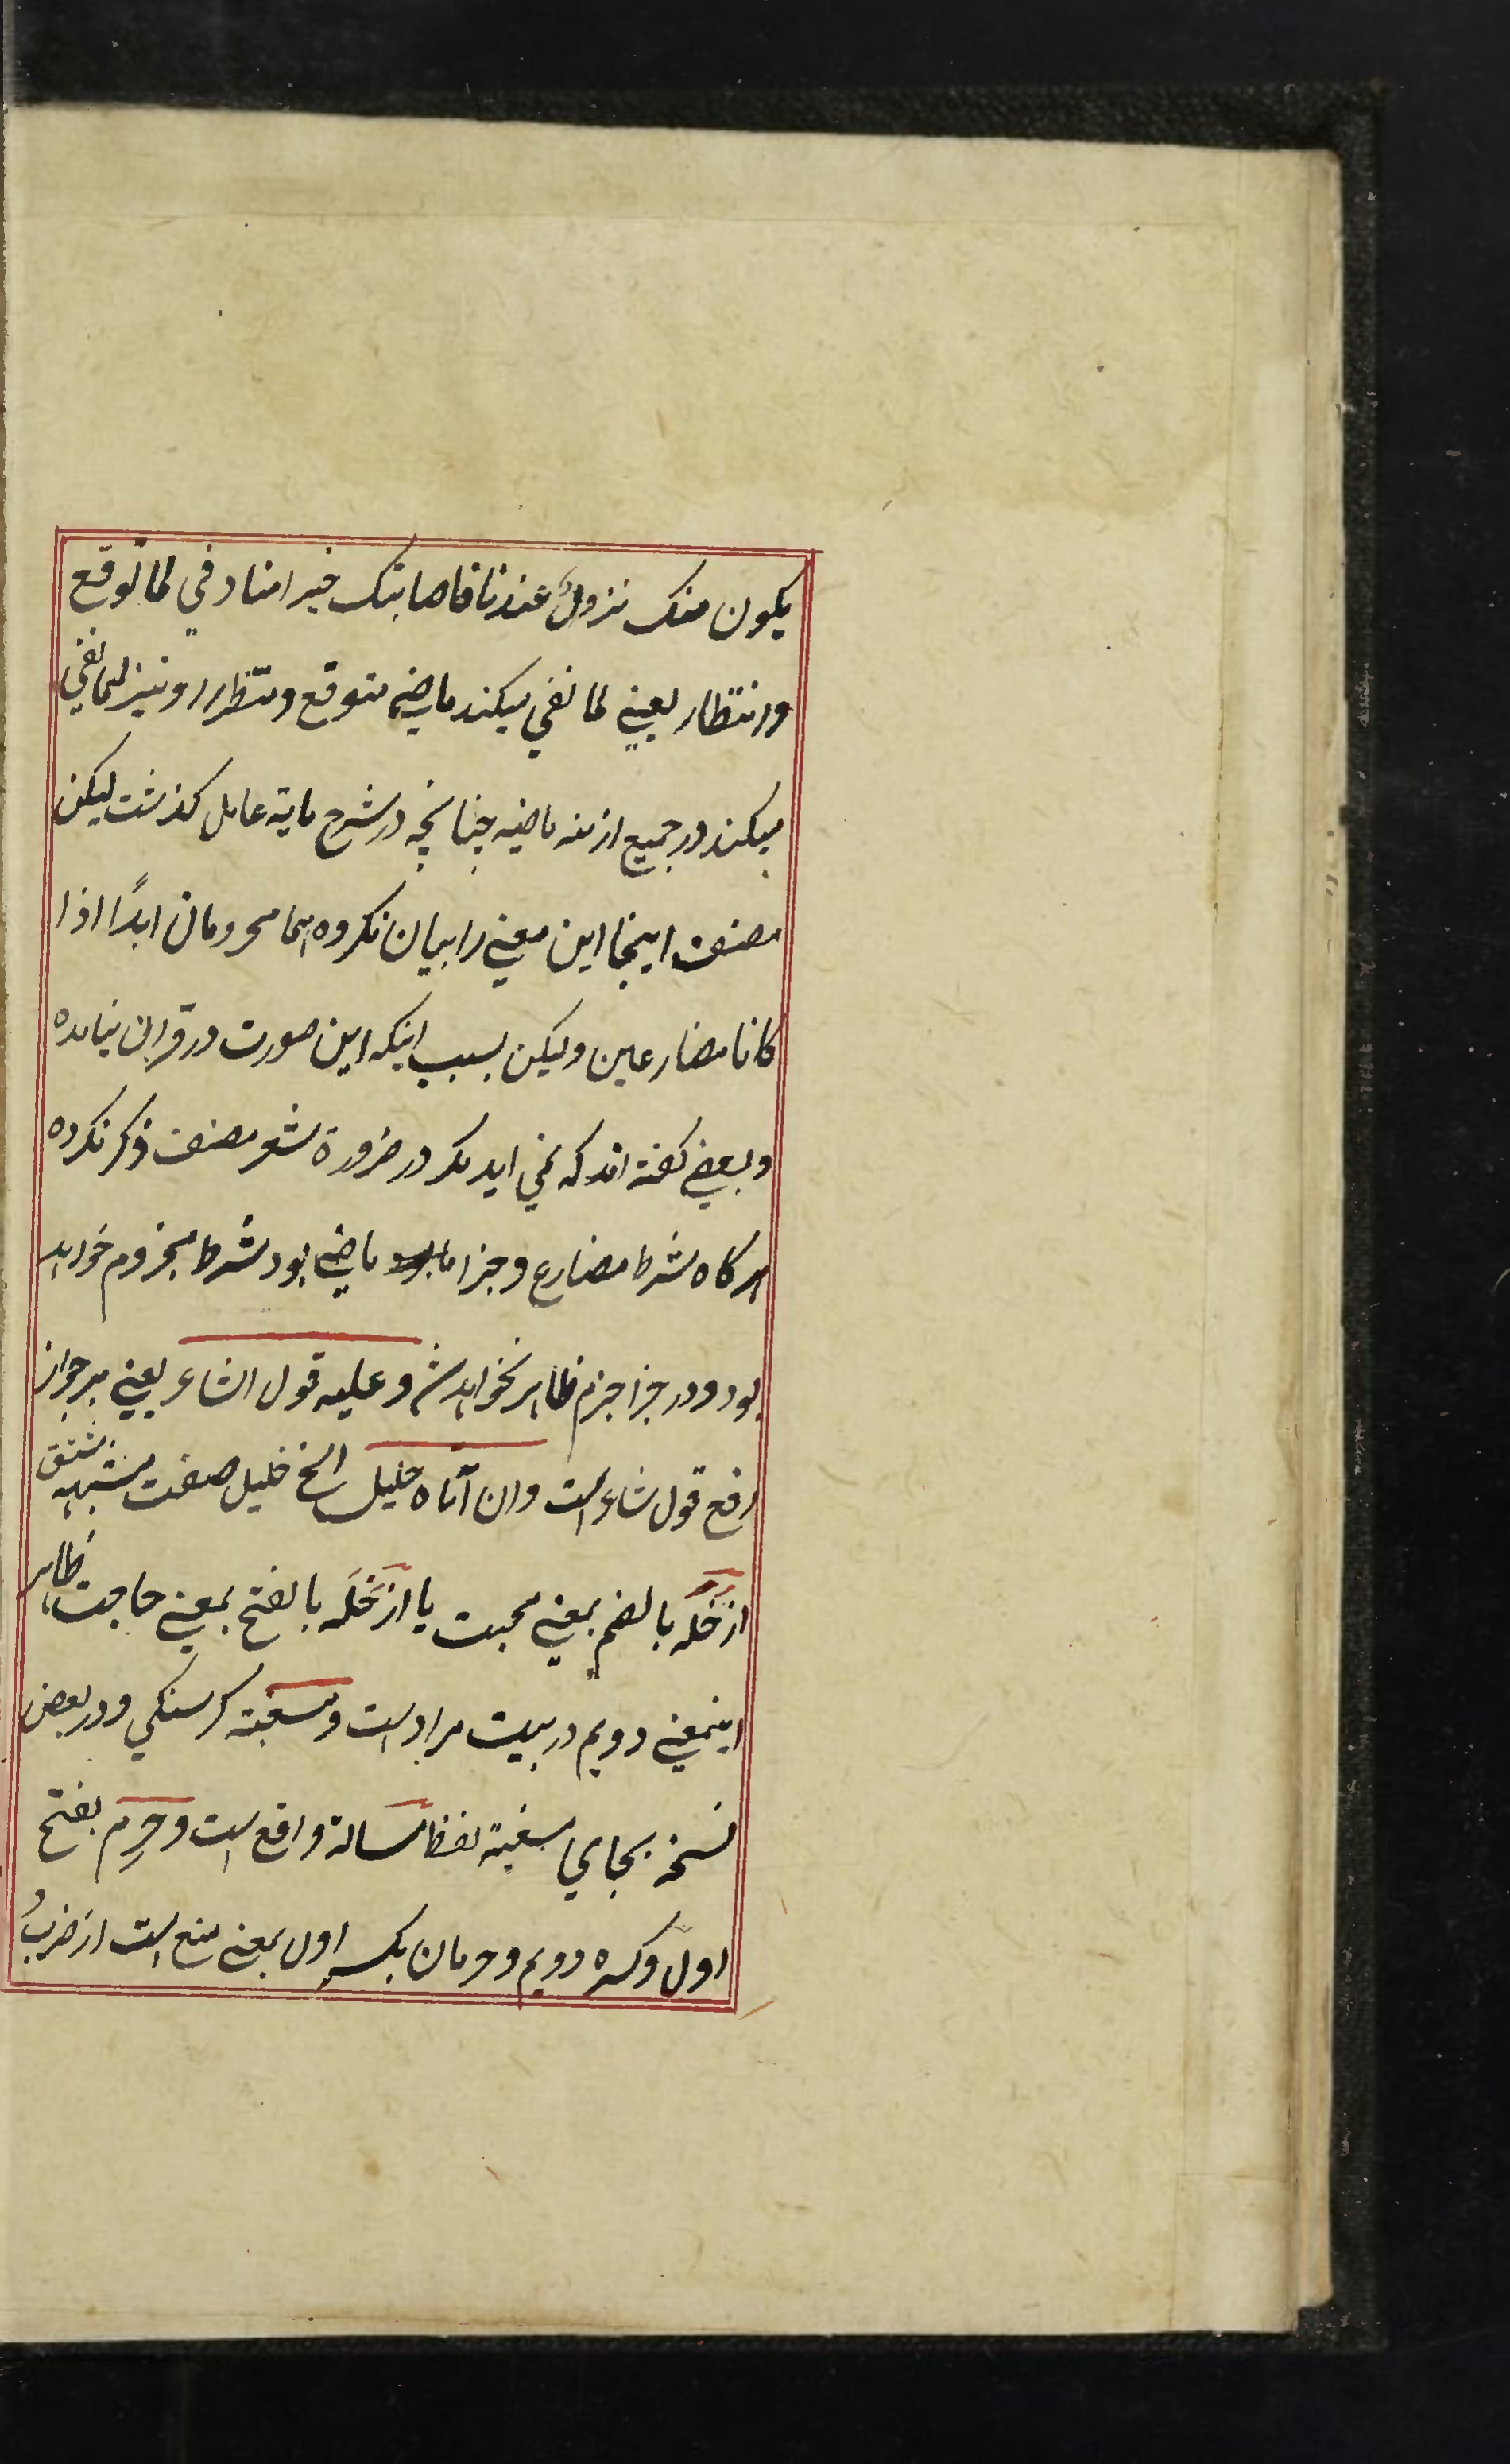 یکون منک نزولٌ عندنا فاصابتک خیر امنا و فی لما توقع
و انتظار یعنی لما نفی میکند ماضی متوقع و منتظر را و نیز لما نفی
میکند در جمیع ازمنه ماضیه چنانچه در شرح مایة عامل کذشت لیکن
مصنف اینجا این معنی را بیان نکرده اهما مجزومان ابدًا اذا
کانا مضارعین و لیکن بسبب اینکه این صورت در قران نیامده
و بعضی کفته اند که نمی اید مکر در ضرورة شعر مصنف ذکر نکرده
هرکاه شرط مضارع و جزا ماضی بود شرط مجزوم خواهد
بود و در جزا جزم ظاهر نخواهد شد و علیه قول الشاعر یعنی بر جواز
رفع قول شاعر است وان آتاه خلیل الخ خلیل صفت مشبهه مشتق
از خُلَه بالضم بمعنی محبت یا از خَلَه بالفتح بمعنی حاجت ظاهر
اینمعنی دویم در بیت مراد است و مسغبة کرسنکی و در بعض
نسخه بجای مسغبة لفظ مسالة واقع است و حَرِم بفتح
اول و کسره دویم و حرمان بکسر اول بمعنی منع است از ضربُ